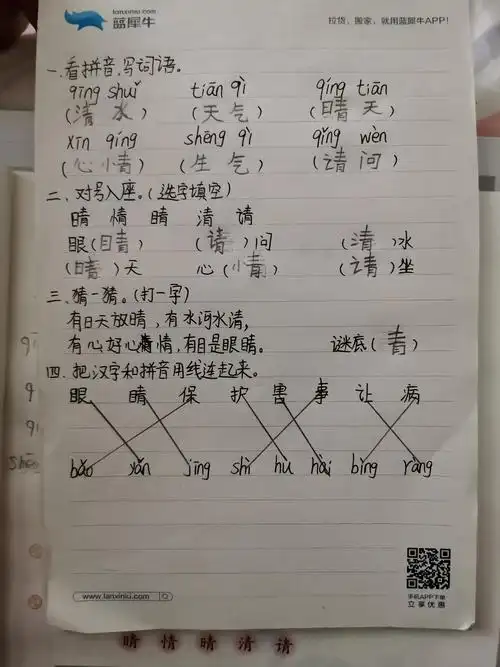 lanxiniu.com
蓝犀牛
拉货、搬家,就用蓝犀牛APP!
一、看拼音,写词语。
qīng shuǐ tiān qì qíng tiān
(清 水) (天 气) (晴 天)
xīn qíng shēng qì qǐng wèn
(心 情) (生 气) (请 问)
二、对号入座。(选字填空)
睛 情 晴 清 请
眼(睛)(请)问 (清)水
(晴)天 心(情)(请)坐
三、猜一猜。(打一字)
有日天放晴,有水河水清,
有心好心情,有目是眼睛。 谜底(青)
四、把汉字和拼音用线连起来。
眼 睛 保 护 害 事 让 病
bǎo yǎn jīng shì hù hài bìng ràng
www.lanxiniu.com
手机APP下单
立享优惠
睛 情 晴 清 请